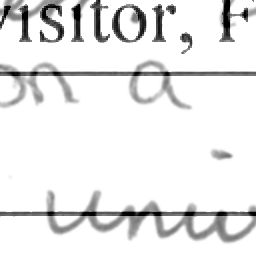 visitor, F
on a
univ